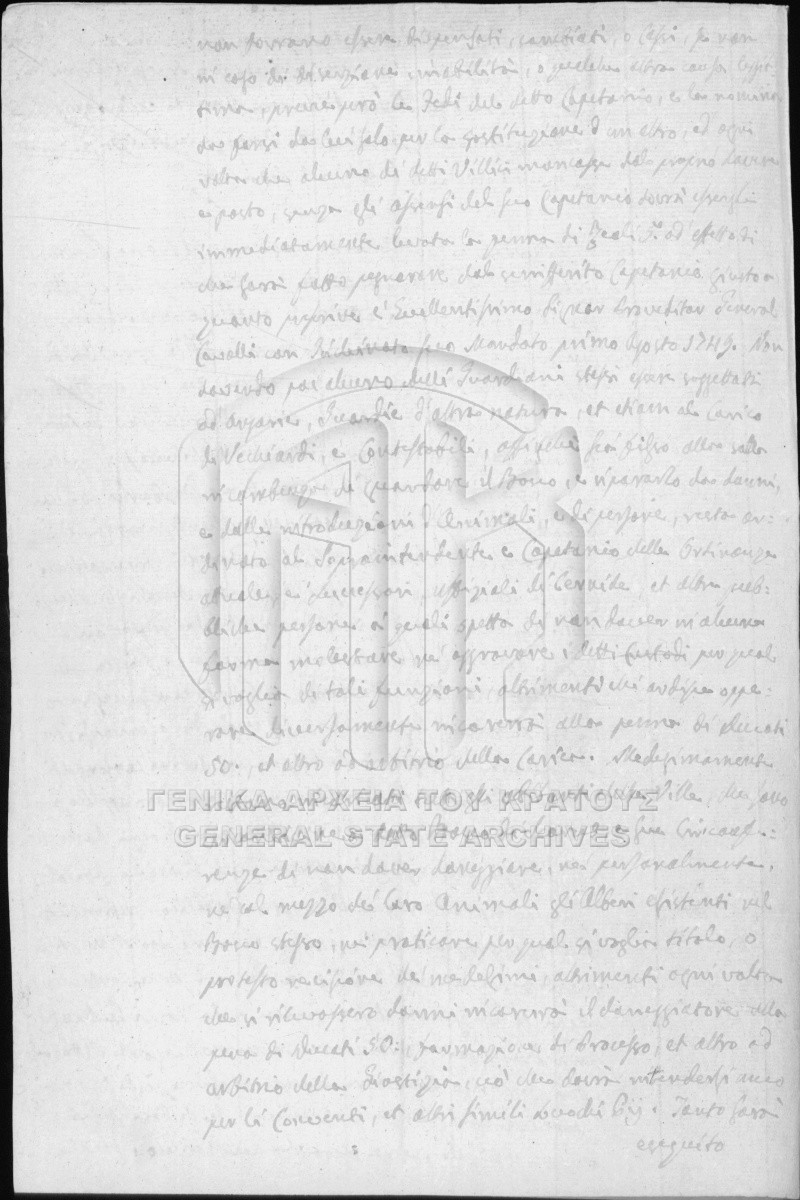 non dovranno esser dispensati, cambiati, o cassi, se non
in caso di diserzione inabilità, o qualche altra causa legit-
tima, precise però le Fedi del detto Capetanio, e la nomina
da farsi da lui solo per la sostituzione d'un altro, ed ogni
volta che alcuno di detti Villici mancasse dal proprio dovere
e posto, senza gli assensi del suo Capetanio dovrà essergli
immediatamente levata la penna di Reali 5: ad effetto di
che sarà fatto pegnorare dal Capetanio giusto a
quanto prescrive l'Eccellentissimo Signor Proveditor General
Cavalli con suo Mandato primo Agosto 1749. Non
dovendo poi alcuno delli Guardiani stessi esser soggettati
ad Angarie, Guardie d'altra natura, et etiam al Carico
di Vecchiardi, e Contestabili, affinchè sia fisso alla sola
incombenza di guardare il Bosco, e ripararlo da danni,
e dalla introduzioni d'Animali, e di persone, resta or-
dinato al Sopraintendente e Capetanio della Ordinanza
attuale, e successori, uffiziali di Cernide, et altre pub-
bliche persone a quali spetta di non dover in alcuna
forma molestare nè aggravare i detti Custodi per qual
si voglia di tali funzioni, altrimenti chi ardisse oppe-
rare diversamente incorrerà alla penna di Ducati
50:, et altro ad arbitrio della Carica. Medesimamente
Ville, che sono
detto Bosco
renza di non dover daneggiare, nè personalmente,
nè col mezzo de loro Animali gli Alberi esistenti nel
Bosco stesso, nè praticare per qual si voglia titolo, o
protesto recisione de medesimi, altrimenti ogni volta
che si rilevassero danni incorrerà il daneggiatore alla
pena di Ducati 50:, formazione di Processo, et altro ad
arbitrio della Giustizia, ciò che dovrà intendersi anco
per li Conventi, et altri simili luochi Pij. Tanto sarà
eseguito